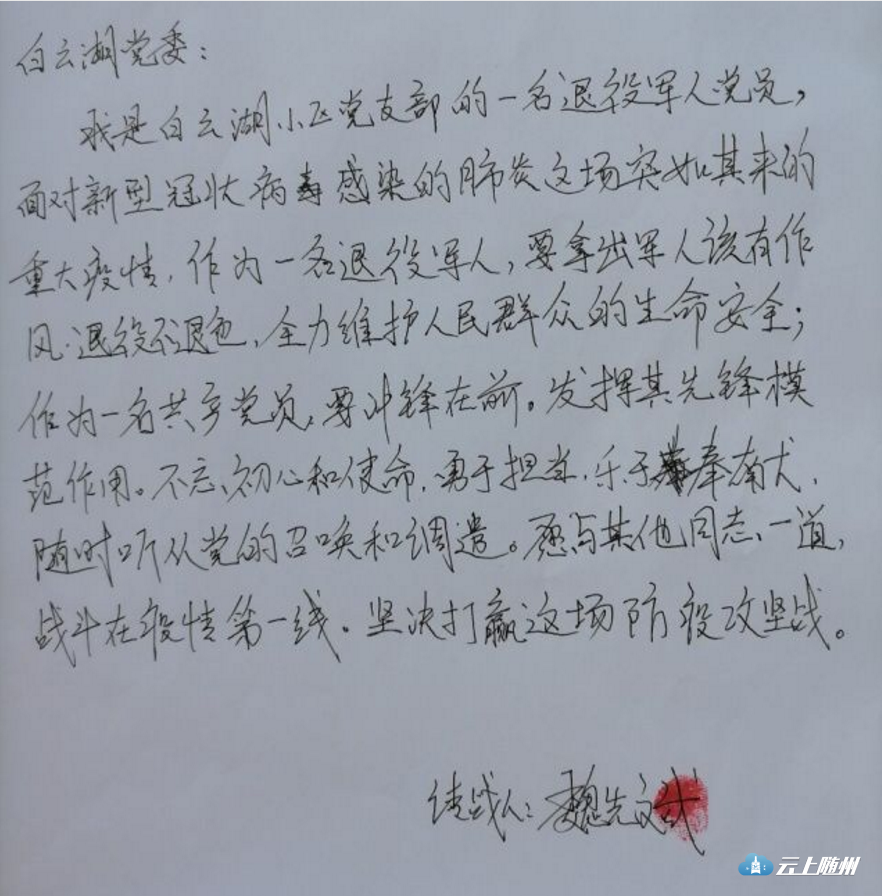 白云湖党委：
我是白云湖小区党支部的一名退役军人党员，
面对新型冠状病毒感染的肺炎这场突如其来的
重大疫情，作为一名退役军人，要拿出军人该有作
风，退役不退色，全力维护人民群众的生命安全；
作为一名共产党员，要冲锋在前。发挥其先锋模
范作用。不忘初心和使命，勇于担当，乐于奉献，
随时听从党的召唤和调遣。愿与其他同志一道，
战斗在疫情第一线。坚决打赢这场防役攻坚战。
请战人：魏先文
云上随州